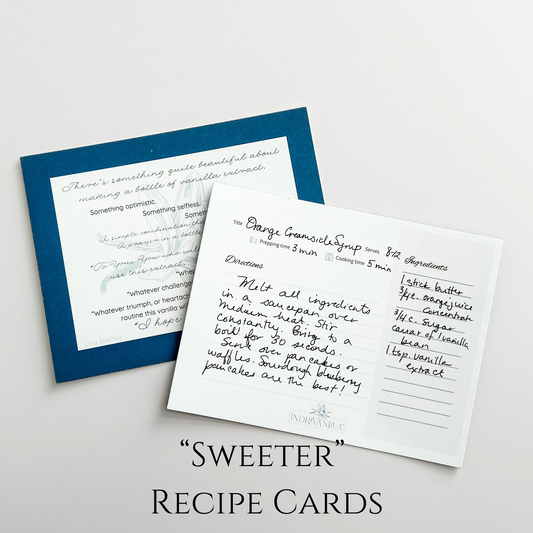 There's something quite beautiful about
making a bottle of vanilla extract.
Something optimistic.
Something selfless.
Someth
A simple combination tha
A prayer in a bottle
"To you. You who wil
use this extract.
"Whe
"Whatever challenge
"Whatever triumph, or heartach
routine this vanilla w
"I hope
Title Orange Creamsicle Syrup Serves 8-12
Prepping time 3 min Cooking time 5 min
Directions
Melt all ingredients
in a saucepan over
medium heat. Stir
constantly. Bring to a
boil for 30 seconds.
Serve over pancakes or
waffles. Sourdough blueberry
pancakes are the best!
Ingredients
1 stick butter
3/4 c. orange juice
concentrate
3/4 c. sugar
caviar of 1 vanilla
bean
1 tsp. vanilla
extract
INDRIVANILLA
"SWEETER"
RECIPE CARDS